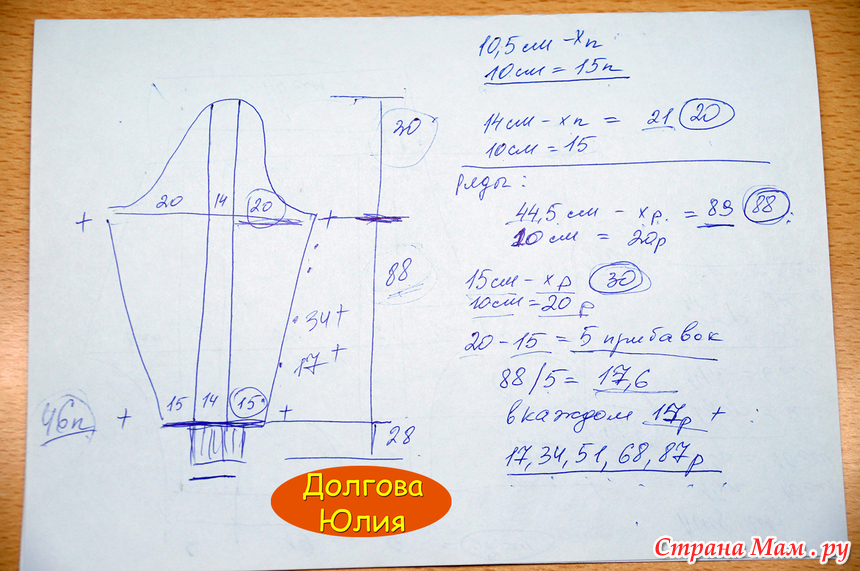 10,5см - хп
10см = 15п
14см - хп = 21 20
10см = 15
ряды:
44,5см - хр. = 89 88
10см = 20р
15см - хр 30
10см = 20р
20 - 15 = 5 прибавок
88/5 = 17,6
в каждом 17р +
17, 34, 51, 68, 87р
30
20 14 20
+ +
88
34+
17+
15 14 15
46п + +
28
Долгова
Юлия
Страна Мам.ру